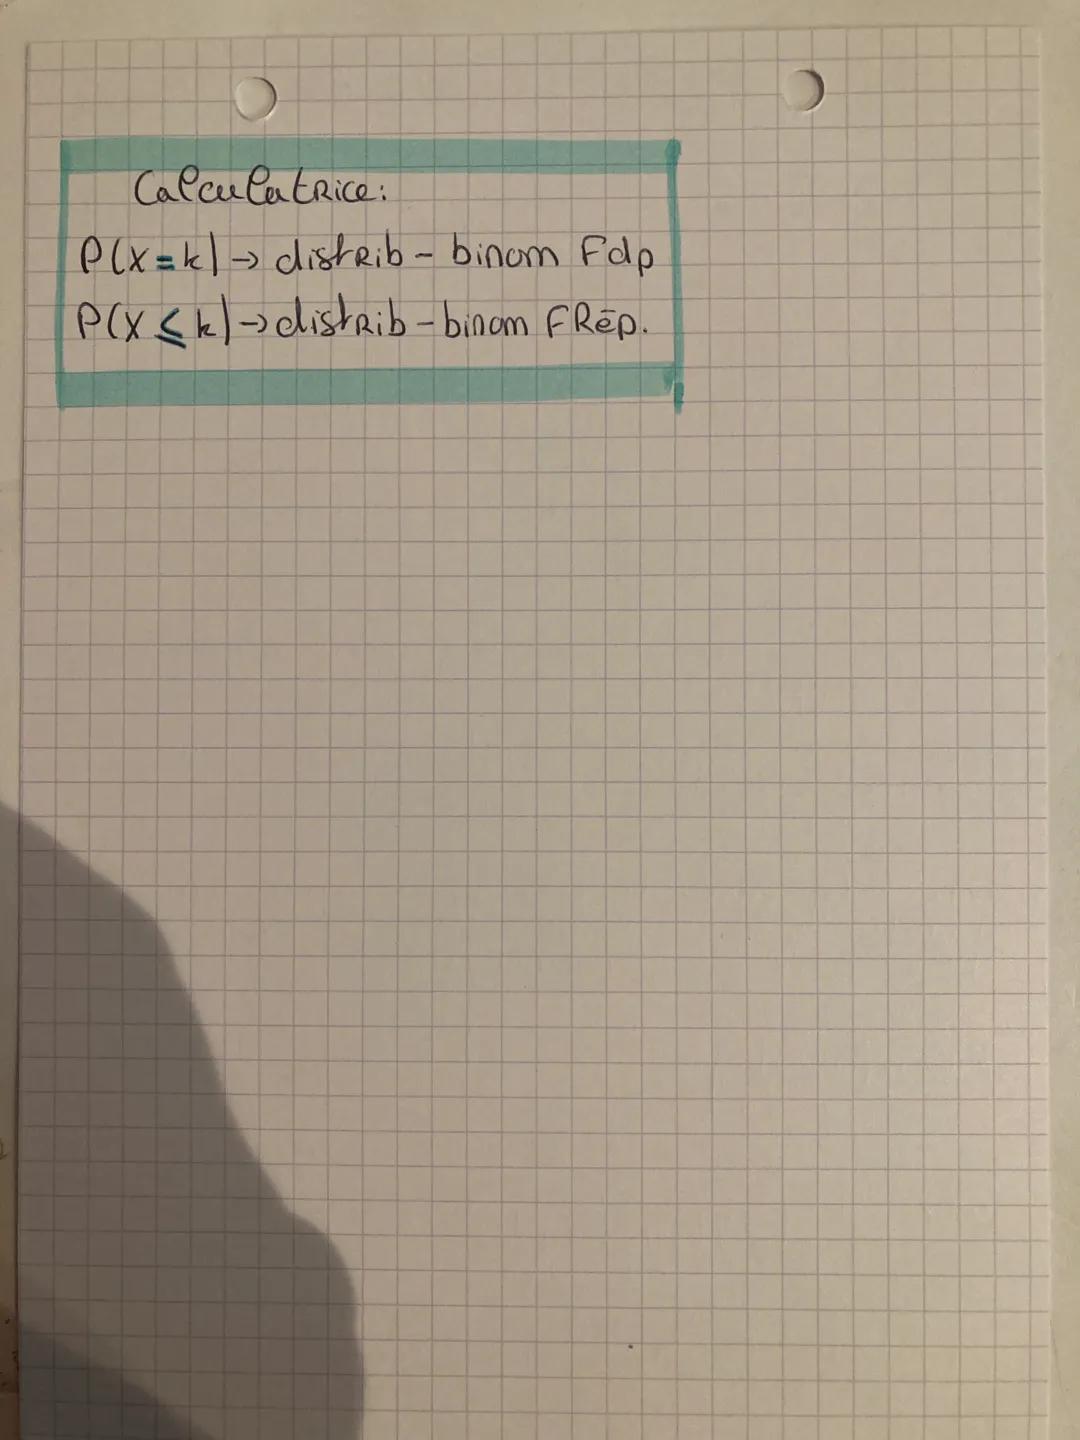 Calculatrice:
P(X=k) → distrib - binom Fdp
P(X ≤ k) → distrib - binom FRép.